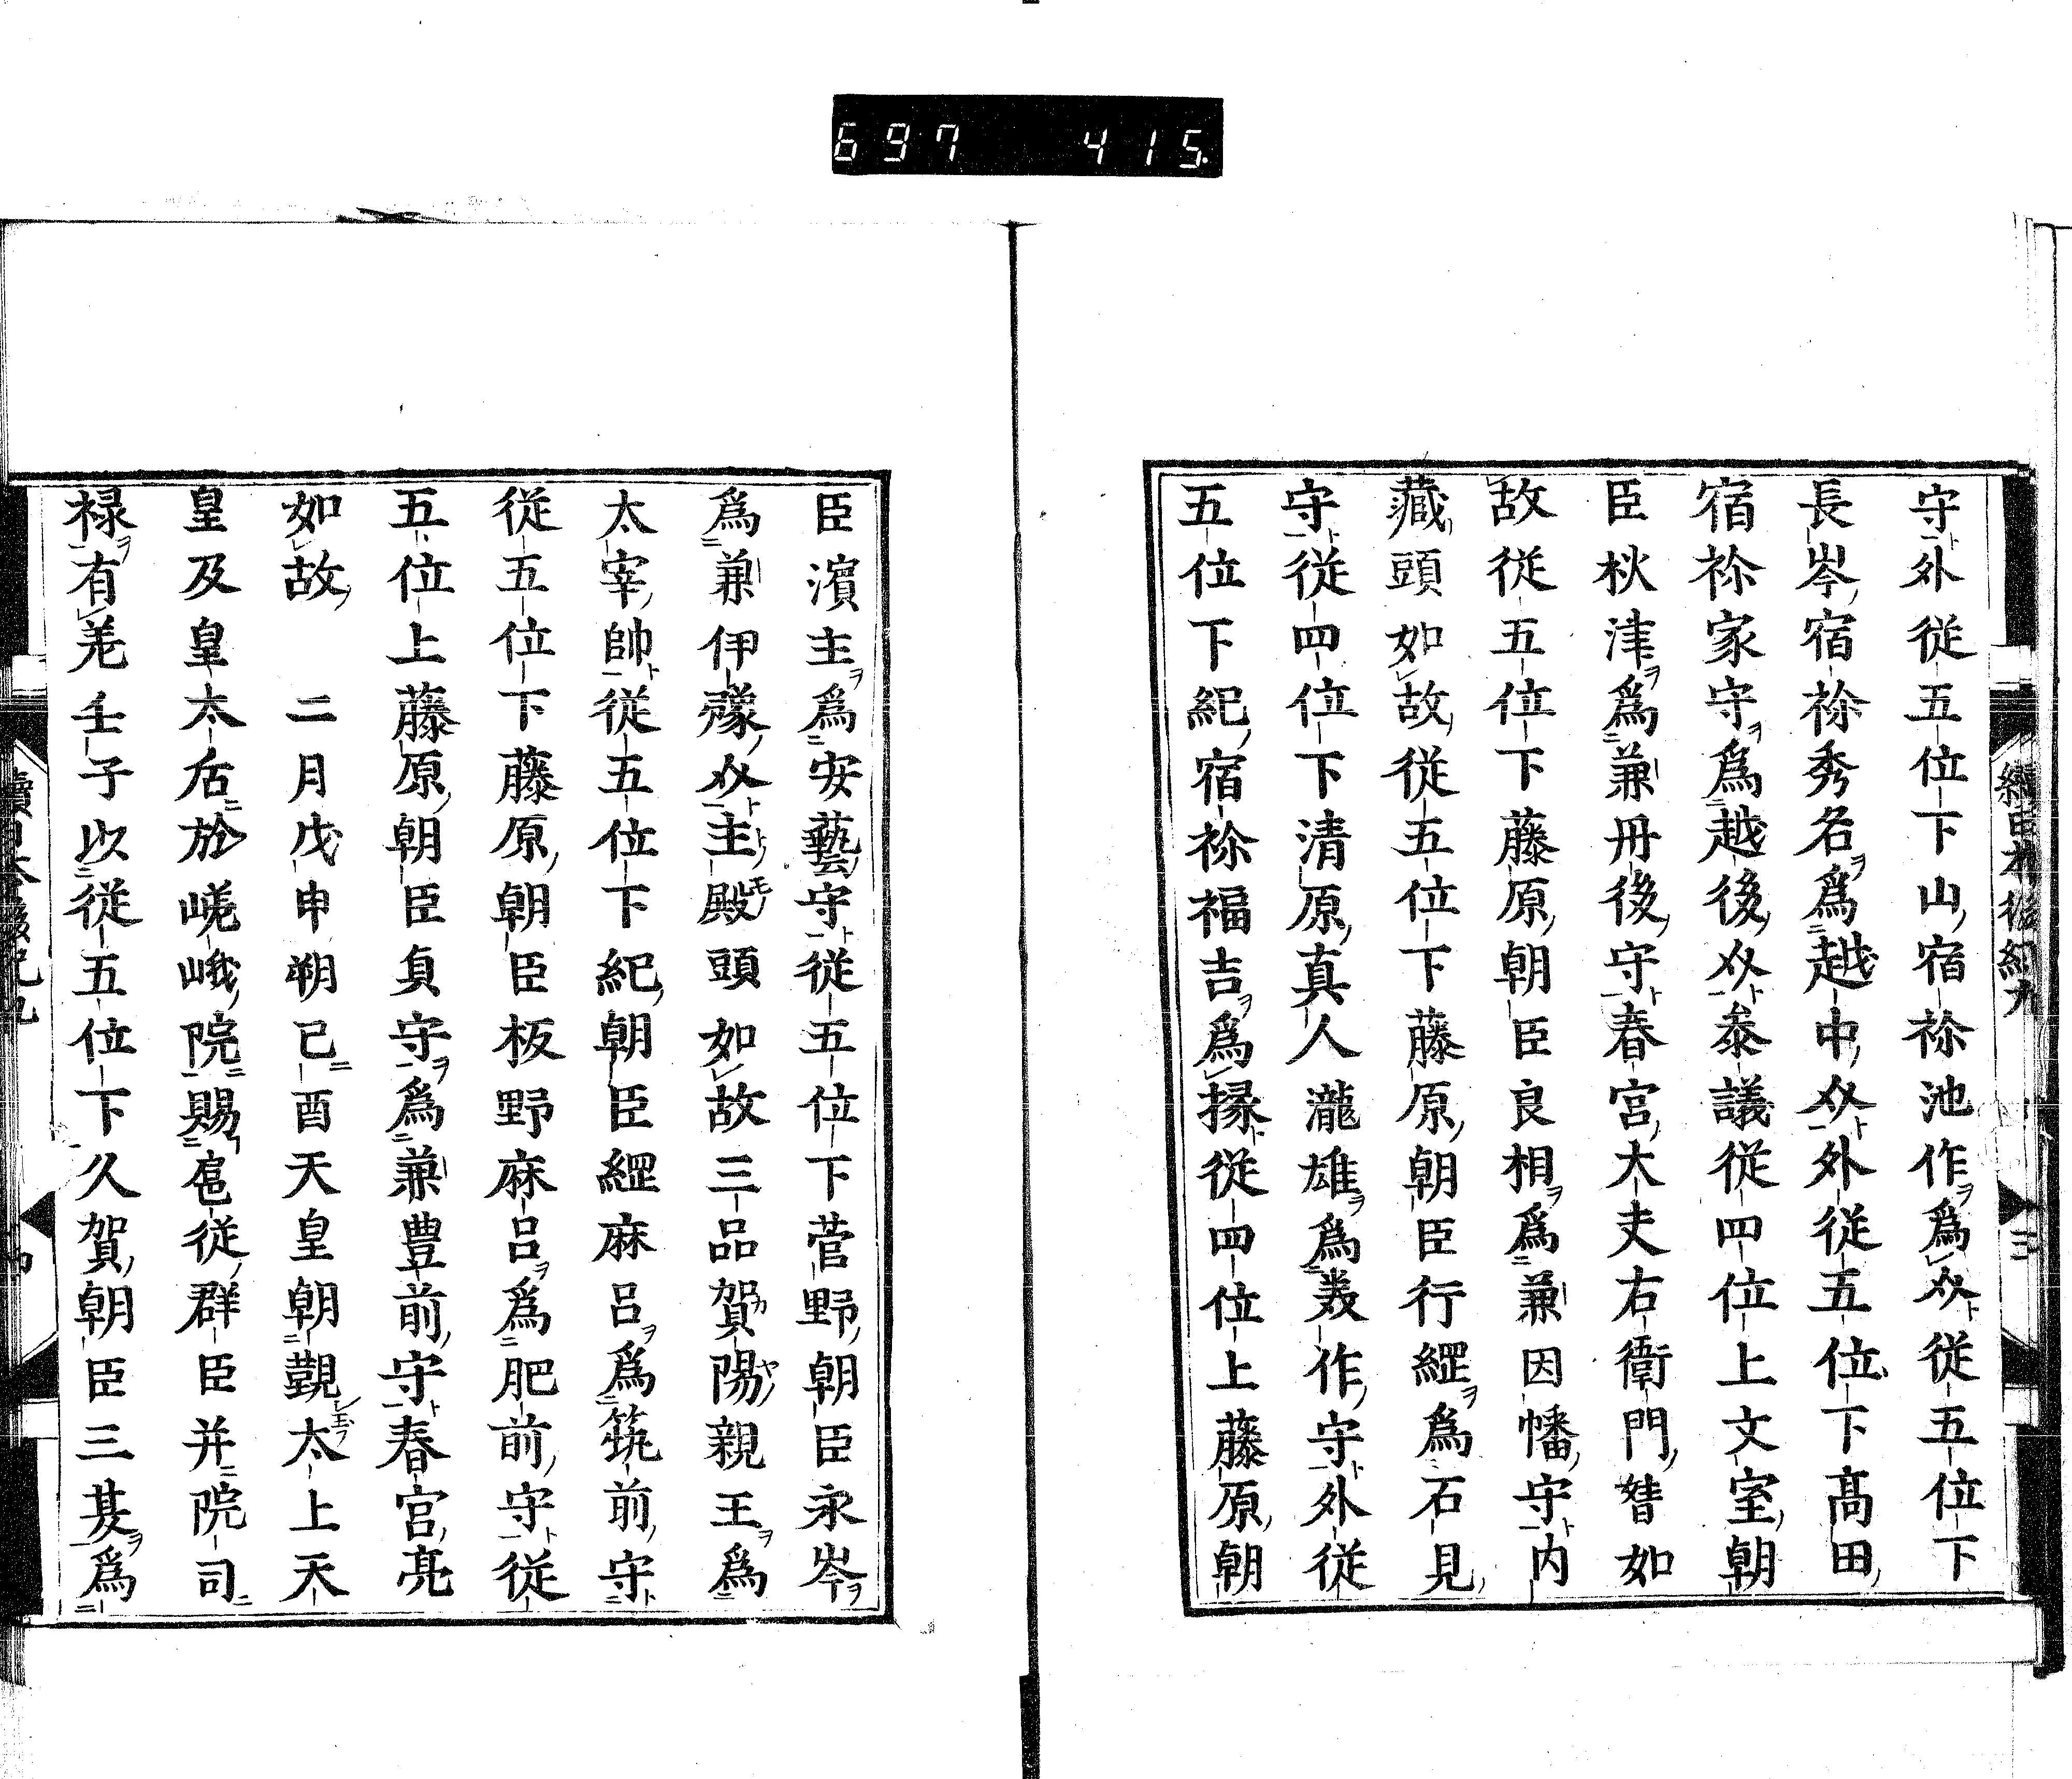 697 415.
續日本後紀九 三
守外従五位下山宿祢池作爲介従五位下
長岑宿祢秀名爲越中介外従五位下髙田
宿祢家守爲越後介叅議従四位上文室朝
臣秋津爲兼丹後守春宮大夫右衛門督如
故従五位下藤原朝臣良相爲兼因幡守内
藏頭如故従五位下藤原朝臣行綱爲石見
守従四位下清原真人瀧雄爲美作守外従
五位下紀宿祢福吉爲掾従四位上藤原朝
臣濱主爲安藝守従五位下菅野朝臣永岑
爲兼伊豫介主殿頭如故三品賀陽親王爲
太宰帥従五位下紀朝臣綱麻呂爲筑前守
従五位下藤原朝臣板野麻呂爲肥前守従
五位上藤原朝臣貞守爲兼豊前守春宮亮
如故 二月戊申朔己酉天皇朝覲太上天
皇及皇太后於嵯峨院賜扈従群臣并院司
禄有差壬子以従五位下久賀朝臣三夏爲
續日本後紀九 四